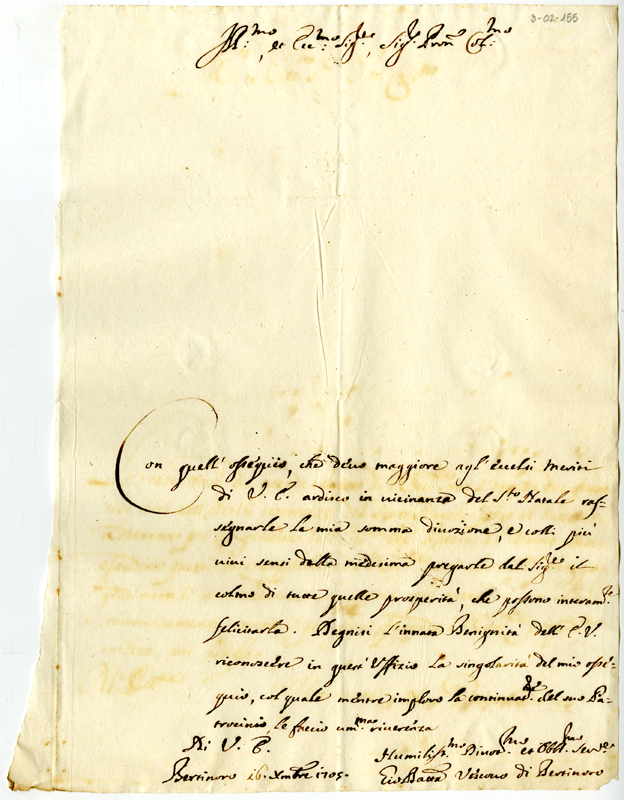 3-02-155
Ill:mo, et Ecc:mo Sig:re, Sig:r Pron Col:mo
Con quell' ossequio, che devo maggiore agl' eccelsi meriti
di V. E. ardisco in vicinanza del S.to Natale ras-
segnarle la mia somma divozione, e colli più
vivi sensi della medesima pregarle dal Sig:re il
colmo di tutte quelle prosperità, che possono interam.te
felicitarla. Degnisi l'innata Benignità dell' E. V.
riconoscere in quest' Uffizio la singolarità del mio osse-
quio, col quale mentre imploro la continuaz.ne del suo Pa-
trocinio, le faccio um:ma riverenza
Di V. E.
Bertinoro 16. Xmbre 1705.
Humiliss:mo Divot:mo et Obbl:mo Serv:re
Gio Batta Vescovo di Bertinoro